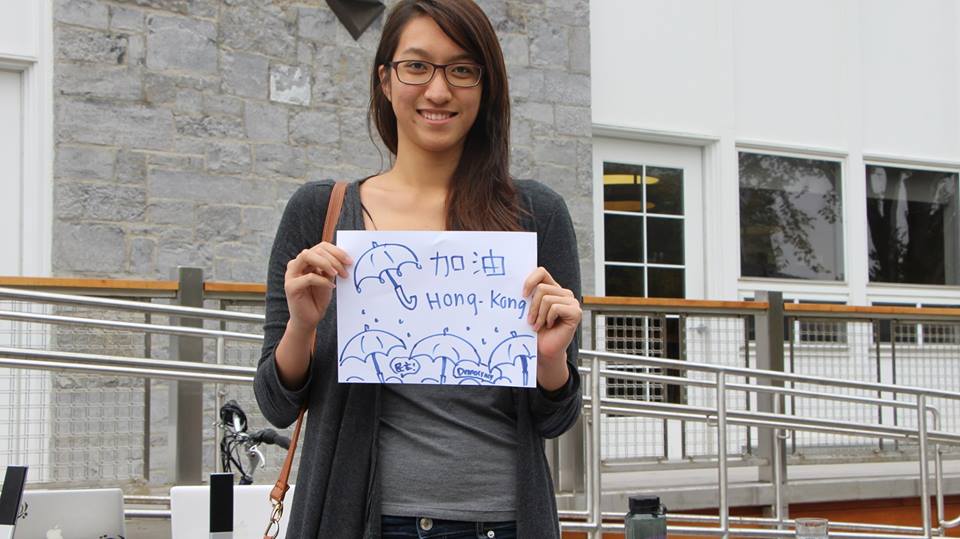 加油
Hong-Kong
民主!
Democracy